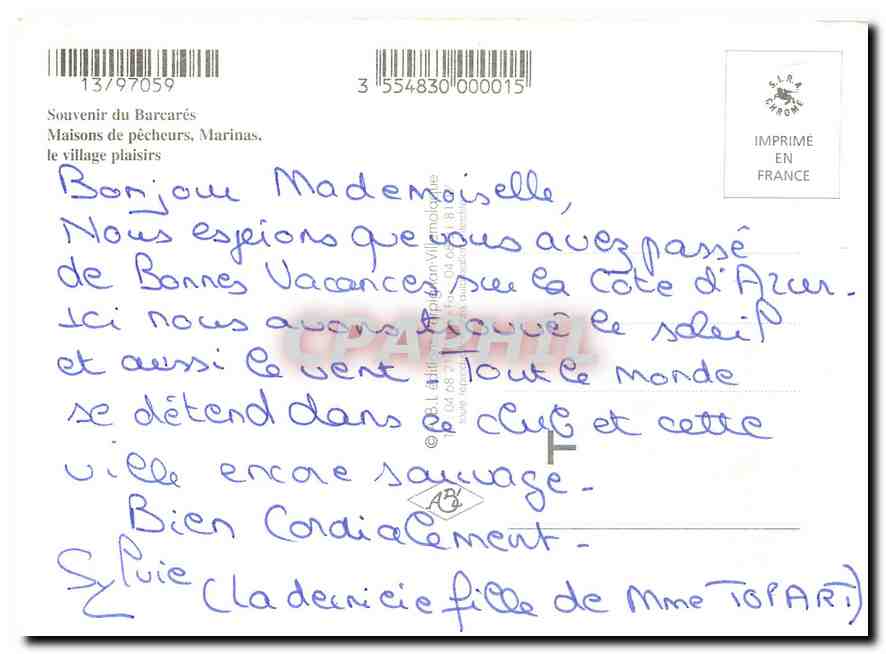 13/97059
3 554830 000015
Souvenir du Barcarés
Maisons de pêcheurs, Marinas.
le village plaisirs
S.I.R.A
CHROME
IMPRIMÉ
EN
FRANCE
Bonjour Mademoiselle,
Nous espérons que vous avez passé
de Bonnes Vacances sur la Côte d'Azur.
Ici nous avons trouvé le soleil
et aussi le vent. Tout le monde
se détend dans le club et cette
ville encore sauvage.
Bien Cordialement.
Sylvie (la dernière fille de Mme TOPART)
CPAPHIL